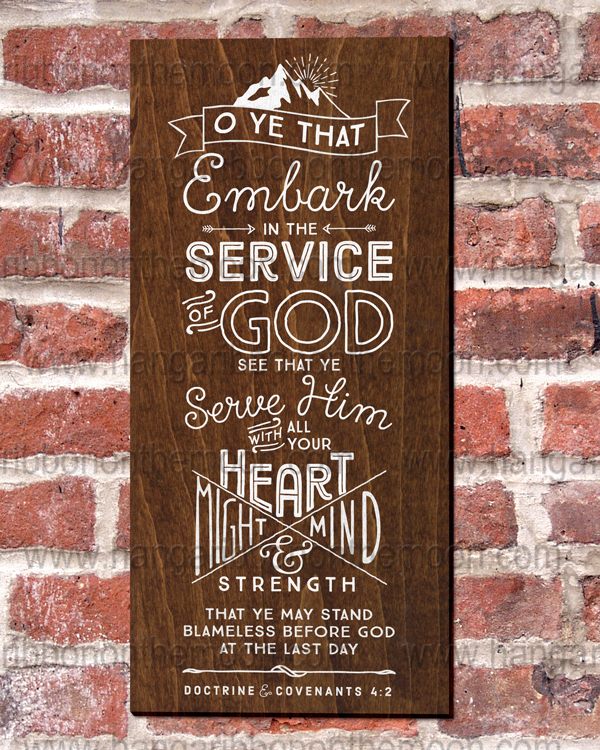 O YE THAT
Embark
IN THE
SERVICE
OF GOD
SEE THAT YE
Serve Him
WITH ALL YOUR
HEART
MIGHT MIND
&
STRENGTH
THAT YE MAY STAND
BLAMELESS BEFORE GOD
AT THE LAST DAY
DOCTRINE & COVENANTS 4:2
www.hangaribbononthemoon.com